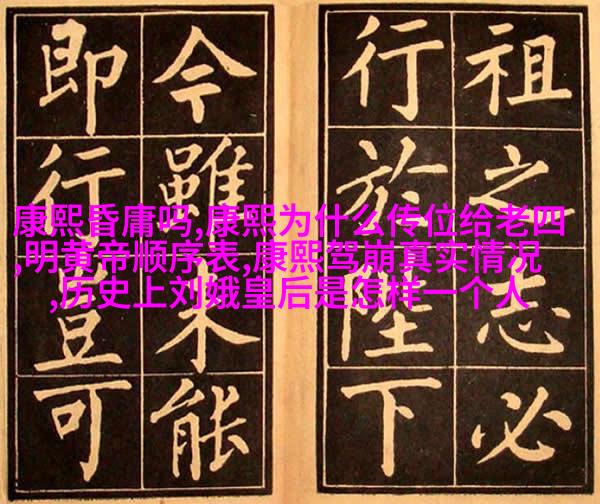 祖之志必
行於陛下
今雖未能
即行豈可
康熙昏庸吗,康熙为什么传位给老四
,明黄帝顺序表,康熙驾崩真实情况
,历史上刘娥皇后是怎样一个人